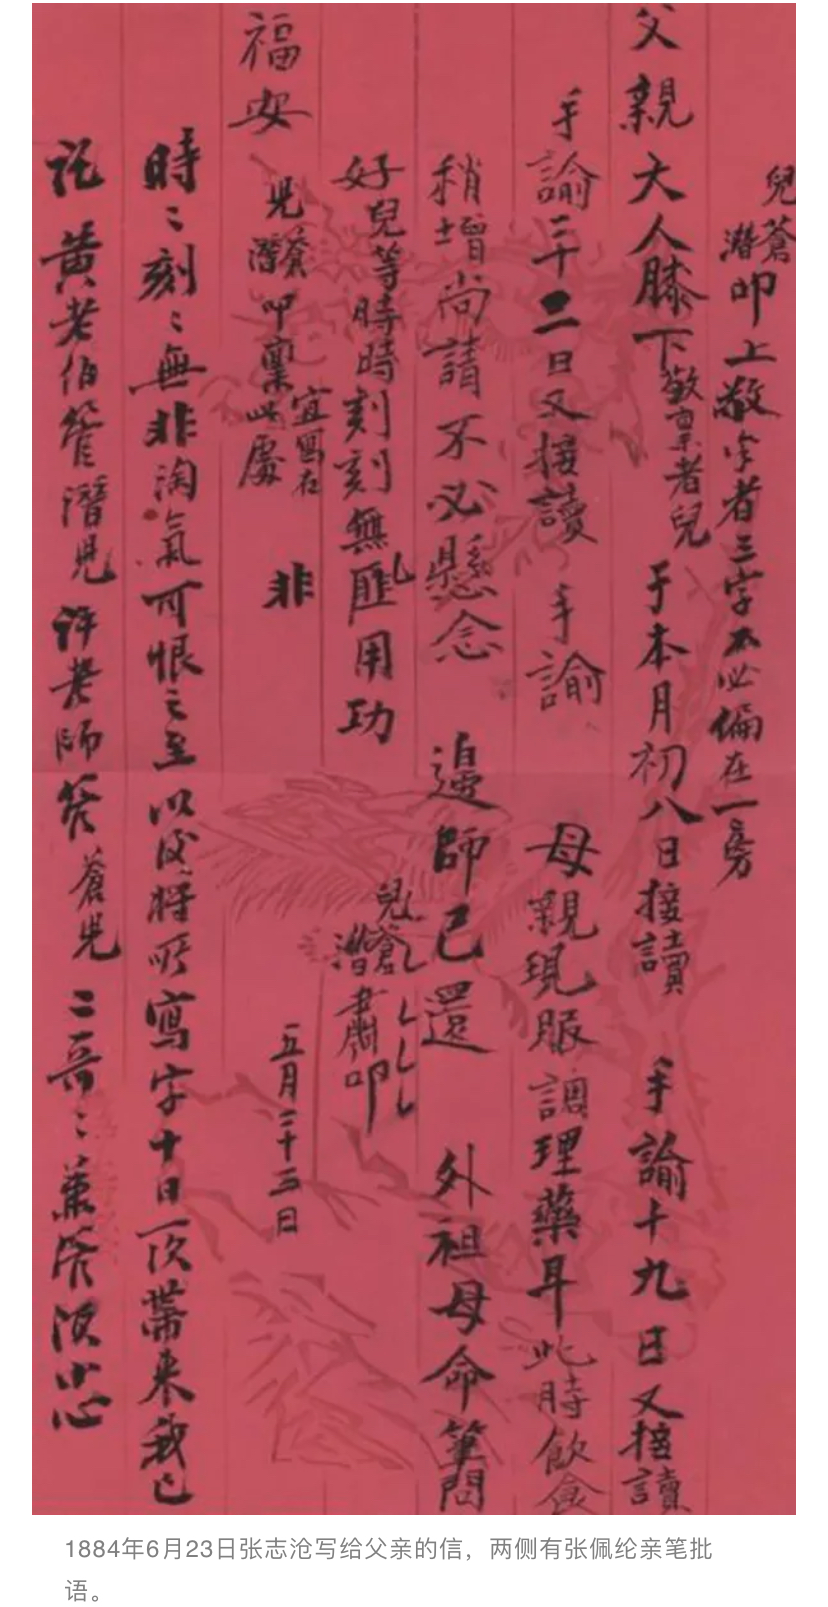 兒蒼潛叩上敬稟者三字不必偏在一旁
父親大人膝下敬稟者兒于本月初八日接讀
手諭十九日又接讀
手諭二十二日又接讀
手諭
母親現服調理藥耳此時飲食
稍增尚請不必懸念
邊師已還
外祖母命筆問
好兒等時時刻刻無匪用功
兒蒼潛肅叩
福安
兒蒼潛叩稟此處宜寫在
非
五月二十三日
時時刻刻無非淘氣可恨之至以後將所寫字十日一次帶來我已
託黃老伯管潛兒許老師管蒼兒二哥二兼管須小心
1884年6月23日张志沧写给父亲的信，两侧有张佩纶亲笔批
语。